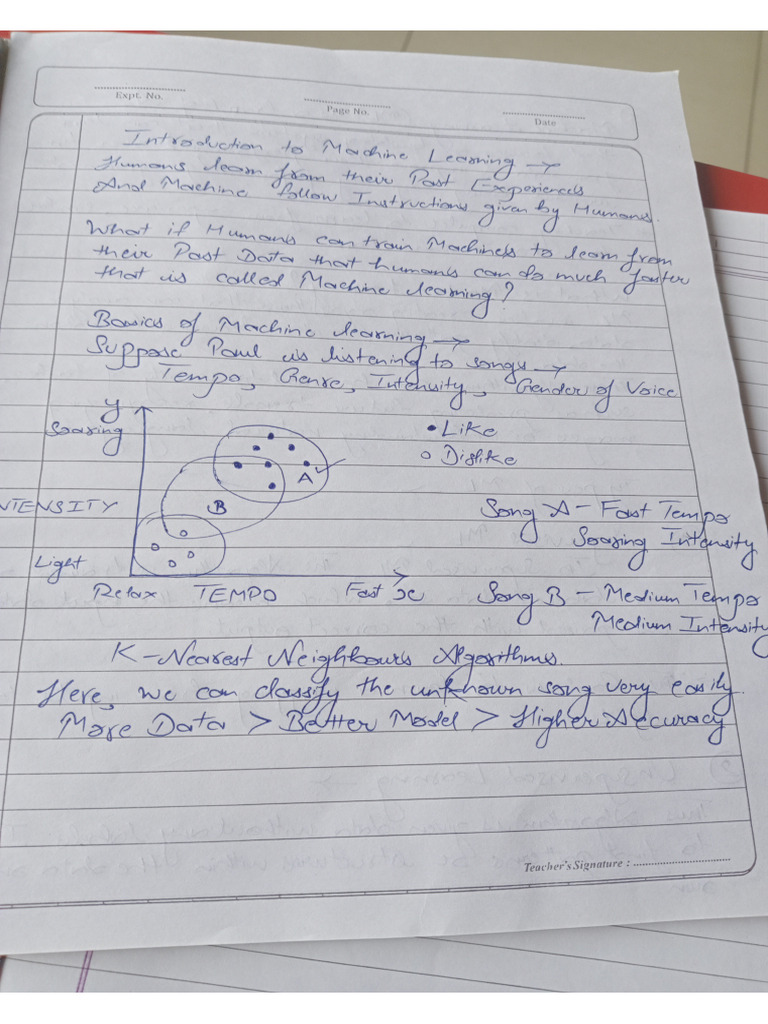 Expt. No.
Page No.
Date
Introduction to Machine Learning →
Humans learn from their Past Experiences
And Machine follow Instructions given by Humans.
What if Humans can train Machines to learn from
their Past Data that humans can do much faster
that is called Machine learning?
Basics of Machine learning →
Suppose Paul is listening to songs →
Tempo, Genre, Intensity, Gender of Voice
y
Soaring
• Like
○ Dislike
A
B
NTENSITY
Song A - Fast Tempo
Soaring Intensity
Light
Relax TEMPO Fast x
Song B - Medium Tempo
Medium Intensity
K-Nearest Neighbours Algorithms.
Here, we can classify the unknown song very easily.
More Data > Better Model > Higher Accuracy
Teacher's Signature :